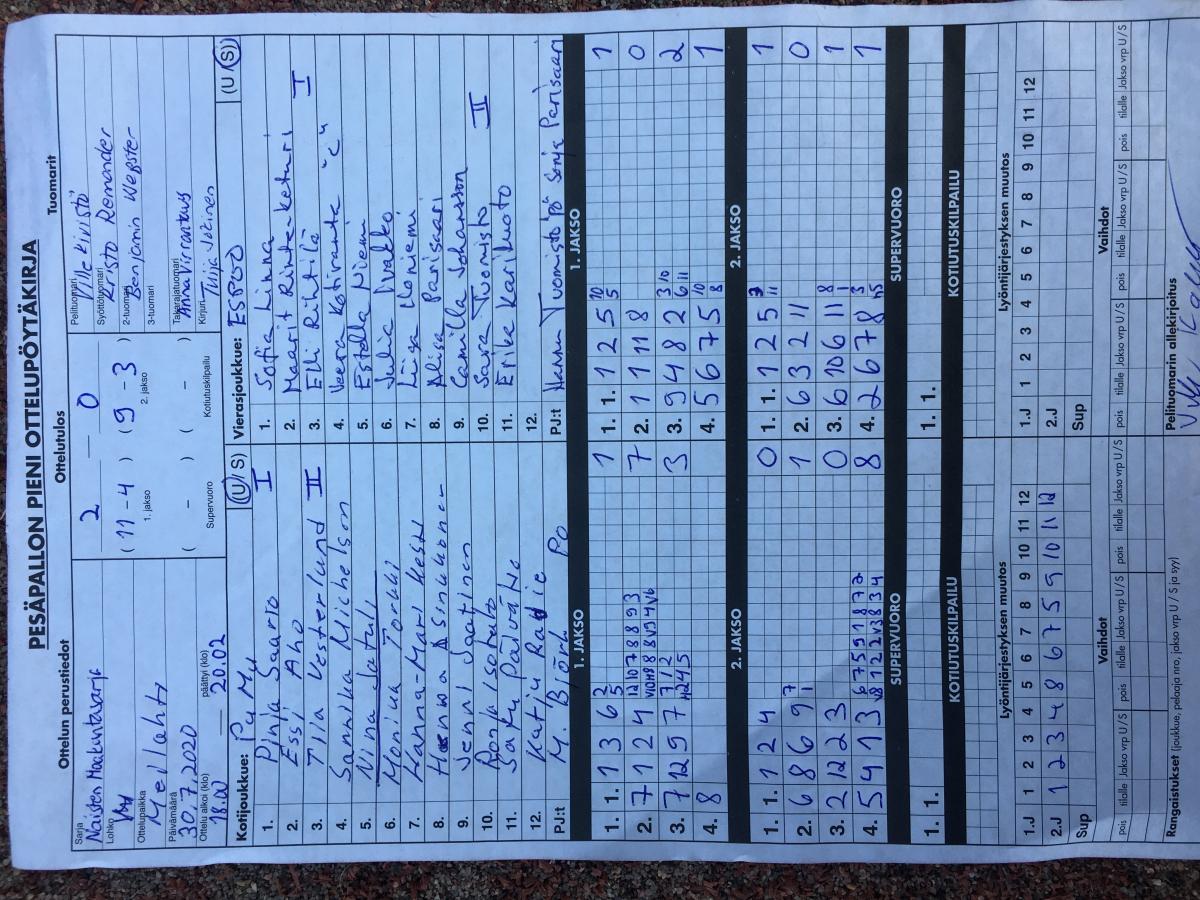 PESÄPALLON PIENI OTTELUPÖYTÄKIRJA
Ottelun perustiedot
Ottelutulos
Tuomarit
Sarja
Naisten Maakuntasarja
Lohko
Ottelupaikka
Meilahti
Päivämäärä
30.7.2020
Ottelu alkoi (klo)
18.00
päättyi (klo)
20.02
2 — 0
( 11 - 4 ) ( 9 - 3 )
1. jakso
2. jakso
( - ) ( - )
Supervuoro
Kotiutuskilpailu
Pelituomari
Ville Kivistö
Syöttötuomari
Risto Remander
2-tuomari
Benjamin Wegster
3-tuomari
Takarajatuomari
Anna Virrantaus
Kirjuri
Tuija Jòtinen
Kotijoukkue: PuMu (U/S)
1. Pinja Saario I
2. Essi Aho
3. Tiia Vesterlund II
4. Sannika Michelson
5. Nina Jatuli
6. Monica Torkki
7. Hanna-Mari Kesti
8. Asinukonen
9. Jenni Jaatinen
10. Ronja Isotalo
11. Satu Päivätie
12. Katju Ratie
PJ:t M. Björk Po
Vierasjoukkue: ESPOO (U/S)
1. Sofia Linna
2. Maarit Rintenketuri
3. Elli Riihtilä I
4. Veera Kotiranta "C"
5. Estella Niemi
6. Julia Iivakko
7. Liisa Iloniemi
8. Aliisa Parisaari
9. Camilla Johansson
10. Sara Tuomisto II
11. Erika Kariluoto
12.
PJ:t Hannu Tuomisto PJ Sonja Parisaari
1. JAKSO
1. 1. 1 3 6 2 5 1
2. 7 1 2 4 7
3. 7 12 9 7 3
4. 8
2. JAKSO
1. 1. 1 2 4 0
2. 6 8 6 9 7 1 1
3. 2 12 2 3 0
4. 5 4 1 3 8
SUPERVUORO
1. 1.
KOTIUTUSKILPAILU
1. JAKSO
1. 1. 1 2 5 10 5 1
2. 1 1 11 8 0
3. 9 4 8 2 3 10 6 11 2
4. 5 6 7 5 10 8 1
2. JAKSO
1. 1. 1 2 5 1
2. 6 3 2 11 0
3. 6 10 6 11 8 1
4. 2 6 7 8 1
SUPERVUORO
1. 1.
KOTIUTUSKILPAILU
Lyöntijärjestyksen muutos
1.J 1 2 3 4 5 6 7 8 9 10 11 12
2.J 1 2 3 4 8 6 7 5 9 10 11 12
Sup
Vaihdot
pois tilalle Jakso vrp U / S pois tilalle Jakso vrp U / S pois tilalle Jakso vrp U / S
Lyöntijärjestyksen muutos
1.J 1 2 3 4 5 6 7 8 9 10 11 12
2.J
Sup
Vaihdot
pois tilalle Jakso vrp U / S pois tilalle Jakso vrp U / S pois tilalle Jakso vrp U / S
Rangaistukset (joukkue, pelaaja nro, jakso, vrp U / S ja syy)
Pelituomarin allekirjoitus